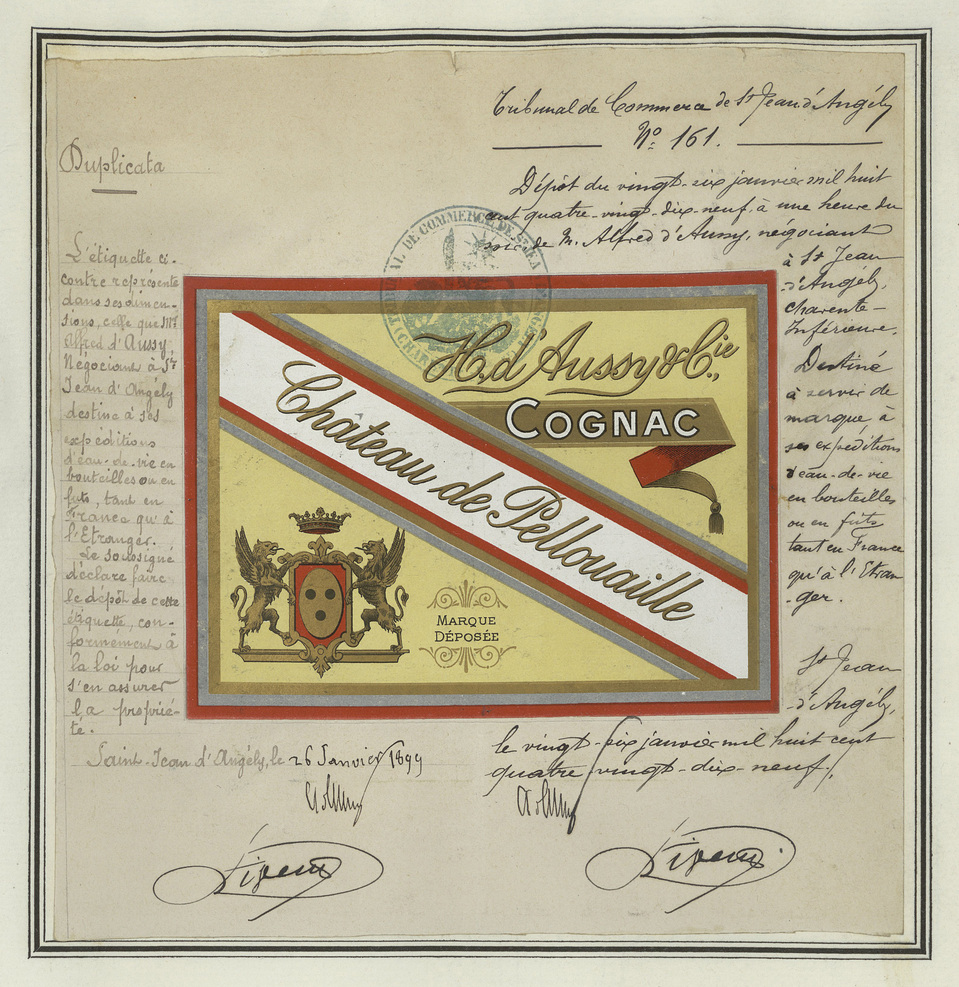 Duplicata
L'étiquette ci-
contre représente
dans ses dimen-
sions, celle que Mr
Alfred d'Aussy,
Négociant à St
Jean d'Angély
destine à ses
expéditions
d'eau-de-vie en
bouteilles ou en
fûts, tant en
France qu'à
l'Etranger.
Le soussigné
déclare faire
le dépôt de cette
étiquette, con-
formément à
la loi pour
s'en assurer
la proprié-
té.
Saint-Jean d'Angély, le 26 Janvier 1899
Tribunal de Commerce de St Jean d'Angély
No 161.
Dépôt du vingt-six janvier mil huit
cent quatre-vingt-dix-neuf, à une heure du
soir, de M. Alfred d'Aussy, négociant
à St Jean
d'Angély,
Charente-
Inférieure.
Destiné
à servir de
marque à
ses expéditions
d'eau-de-vie
en bouteilles
ou en fûts
tant en France
qu'à l'Etran
-ger.
St Jean
d'Angély,
le vingt-six janvier mil huit cent
quatre-vingt-dix-neuf.
TRIBUNAL DE COMMERCE DE ST JEAN
H. d'Aussy & Cie,
COGNAC
Château de Pellouaille
MARQUE
DÉPOSÉE